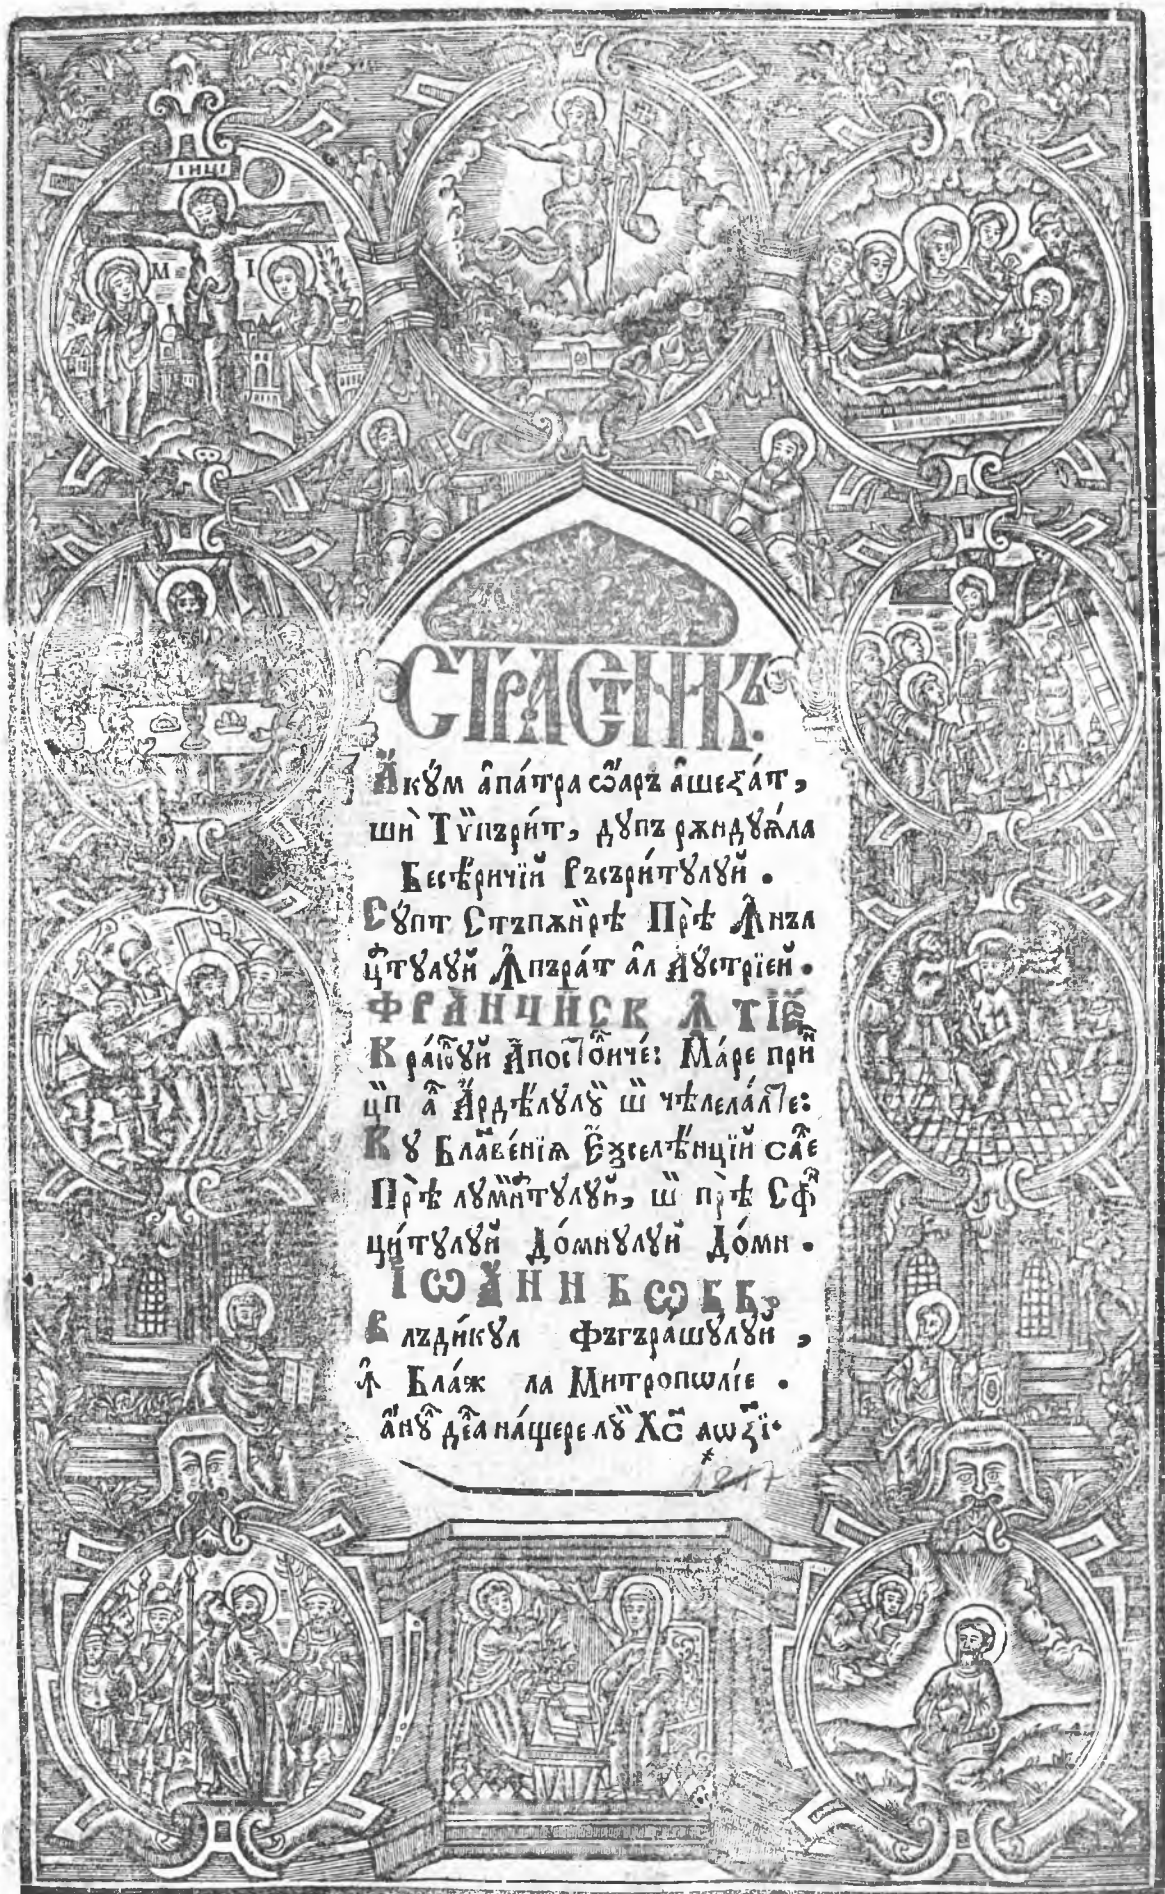 ІНЦІ
М І
СТРАСТНИКЪ.
Акꙋ́м а҆па́тра ѡ҆аръ а҆шеꙁа́т,
шѝ Тѷпъри́т, дꙋпъ рѫндꙋꙗ́ла
Бесѣ́ричїй Ръсъри́тꙋлꙋй.
Сꙋ́пт Стъпѫни́рѣ Прѣ̀ Ꙟнъл
цⷮтꙋлꙋй Ꙟпъра́т а҆л Аꙋ́стрїей.
ФРАНЧИСК Ꙟ ТІѤ
Кра́юⷧꙋй А҆постоⷧичé: Ма́ре приⷩ
цип аⷧ Ардѣ́лꙋлꙋй ши чѣлелáлте:
Кꙋ Блаⷭвéнїѧ Е҆ѯелѣ́нцїй саⷧе
Прѣ̀ лꙋмиⷩатꙋлꙋй, ши прѣ̀ Сфиⷩ
ци́тꙋлꙋй До́мнꙋлꙋй До́мн.
ІѠАНН БѠББ,
Влъди́кꙋл Фъгъра́шꙋлꙋй,
Ꙟ Бла́ж ла Митрополі́е.
а҆нꙋⷧ деⷧа на́щере лꙋй Хс҃ аѡꙁ҃і.
1817